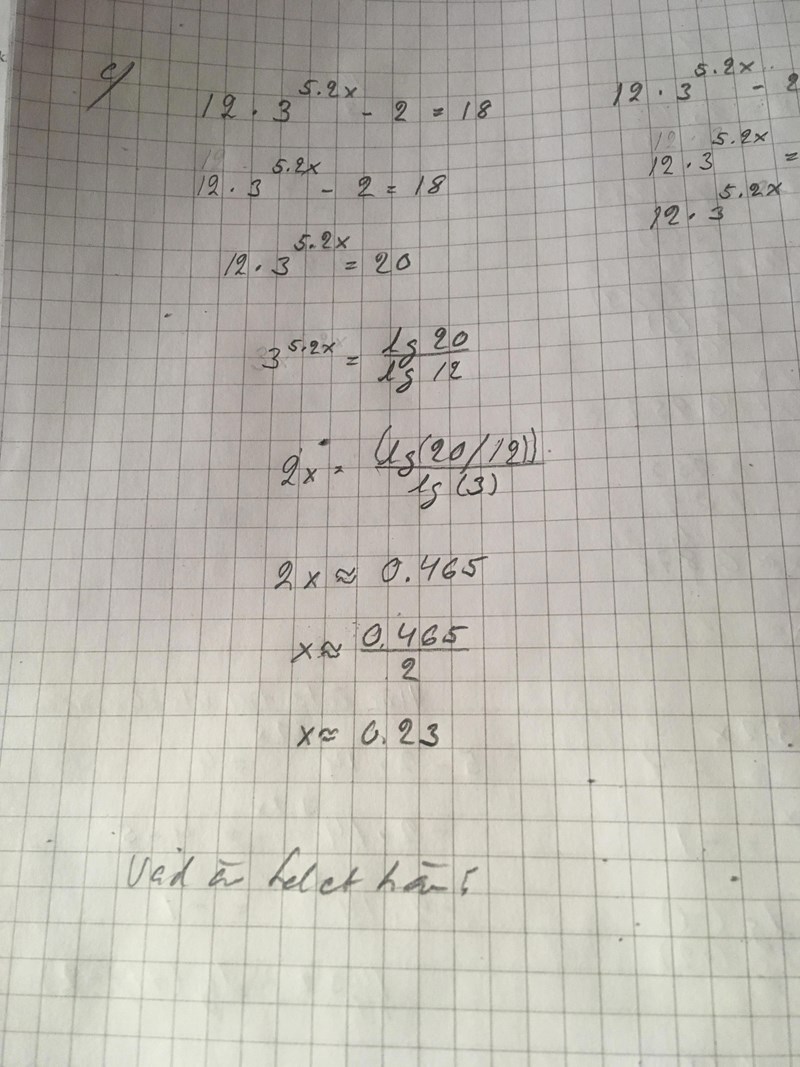 c/
12 · 3^5.2x - 2 = 18
12 · 3^5.2x - 2 = 18
12 · 3^5.2x = 20
3^5.2x = lg 20 / lg 12
2x = (lg(20/12)) / lg (3)
2x ≈ 0.465
x ≈ 0.465 / 2
x ≈ 0.23
Vad är felet här?
12 · 3^5.2x - 2
12 · 3^5.2x =
12 · 3^5.2x